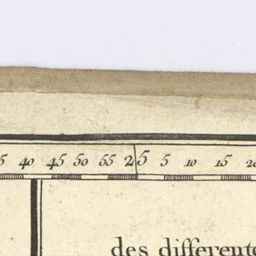 40 45 50 55 25 5 10 15
des different